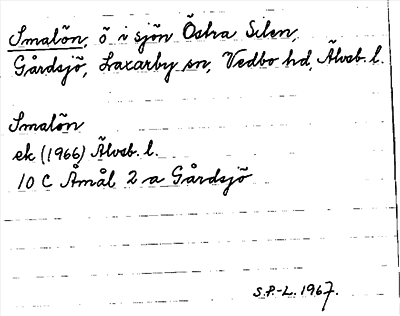 Smalön, ö i sjön Östra Silen,
Gårdsjö, Laxarby sn, Vedbo hd, Älvsb. l.
Smalön
ek (1966) Älvsb. l.
10 C Åmål 2 a Gårdsjö
S.P.-L. 1967.